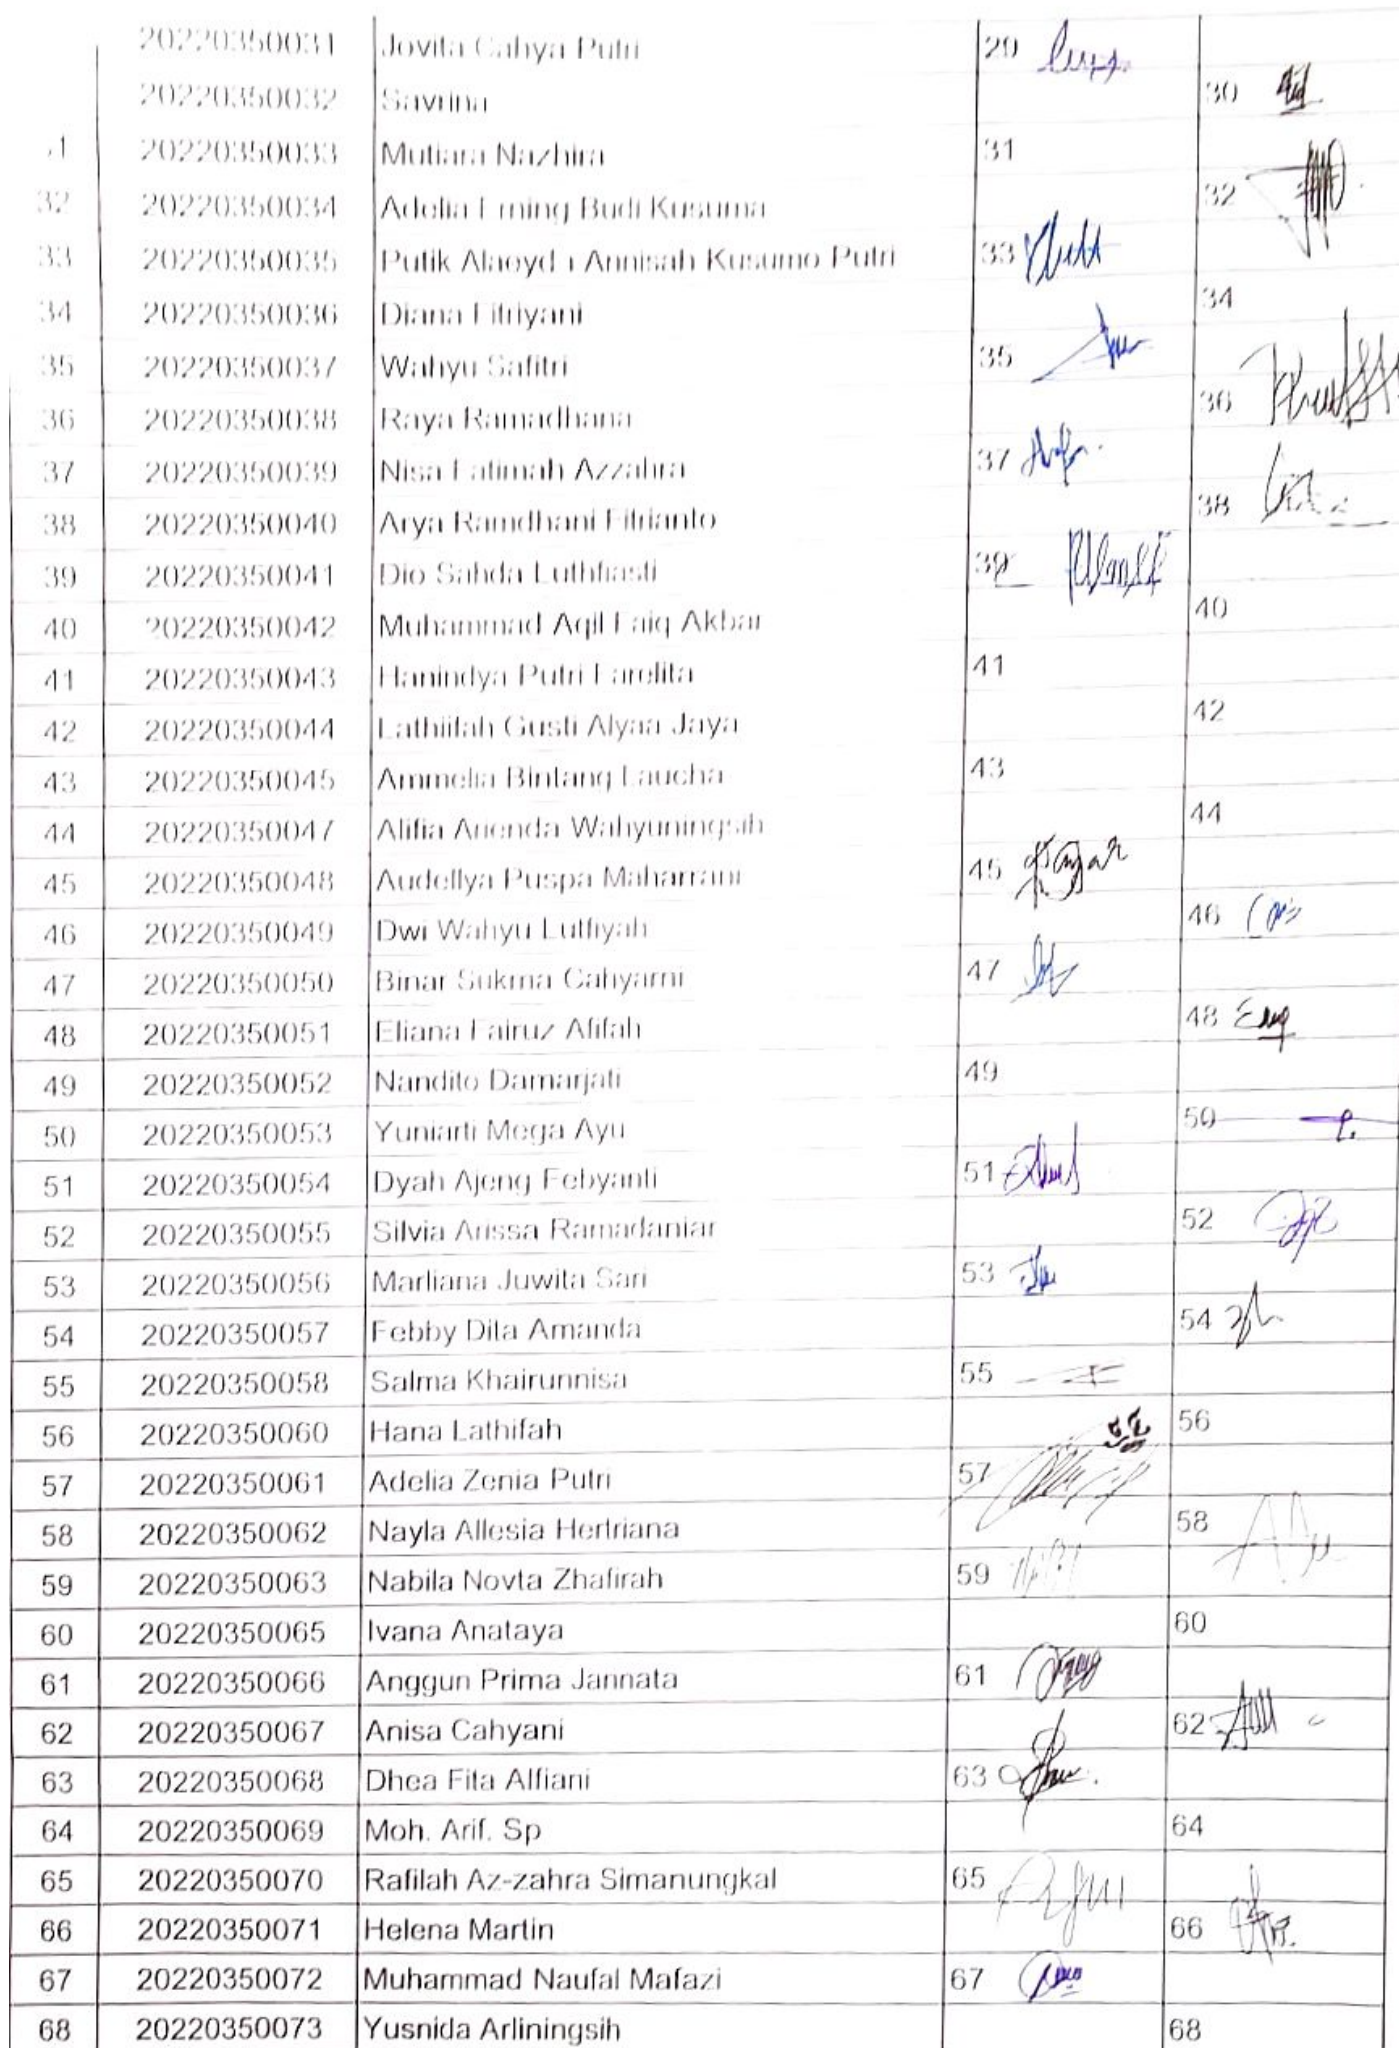 20220350031 Jovita Cahya Putri 29
20220350032 Savrina 30
20220350033 Mutiara Nazhira 31
32 20220350034 Adelia Erning Budi Kusuma 32
33 20220350035 Putik Annisah Kusumo Putri 33
34 20220350036 Diana Fitriyani 34
35 20220350037 Wahyu Safitri 35
36 20220350038 Raya Ramadhana 36
37 20220350039 Nisa Fatimah Azzahra 37
38 20220350040 Arya Ramdhani Fitrianto 38
39 20220350041 Dio Sahda Luthfiasti 39
40 20220350042 Muhammad Aqil Faiq Akbar 40
41 20220350043 Hanindya Putri Farelita 41
42 20220350044 Lathiifah Gusti Alyaa Jaya 42
43 20220350045 Ammelia Bintang Laucha 43
44 20220350047 Alifia Ananda Wahyuningsih 44
45 20220350048 Audellya Puspa Maharrani 45
46 20220350049 Dwi Wahyu Lutfiyah 46
47 20220350050 Binar Sukma Cahyarni 47
48 20220350051 Eliana Fairuz Afifah 48
49 20220350052 Nandito Damarjati 49
50 20220350053 Yuniarti Mega Ayu 50
51 20220350054 Dyah Ajeng Febyanti 51
52 20220350055 Silvia Arissa Ramadaniar 52
53 20220350056 Marliana Juwita Sari 53
54 20220350057 Febby Dita Amanda 54
55 20220350058 Salma Khairunnisa 55
56 20220350060 Hana Lathifah 56
57 20220350061 Adelia Zenia Putri 57
58 20220350062 Nayla Allesia Hertriana 58
59 20220350063 Nabila Novta Zhafirah 59
60 20220350065 Ivana Anataya 60
61 20220350066 Anggun Prima Jannata 61
62 20220350067 Anisa Cahyani 62
63 20220350068 Dhea Fita Alfiani 63
64 20220350069 Moh. Arif. Sp 64
65 20220350070 Rafilah Az-zahra Simanungkal 65
66 20220350071 Helena Martin 66
67 20220350072 Muhammad Naufal Mafazi 67
68 20220350073 Yusnida Arliningsih 68